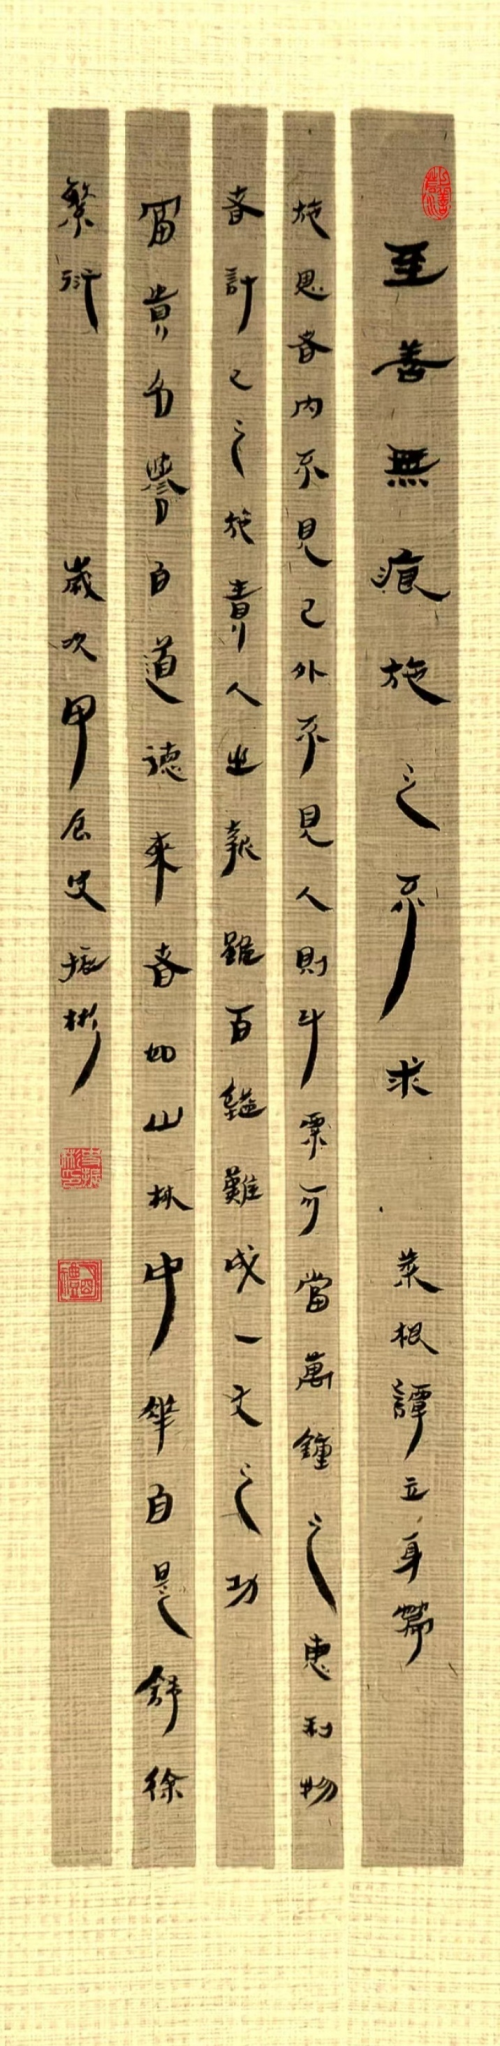 至善無痕施之不求 菜根譚立身篇
施恩者内不見己外不見人則斗粟可當萬鍾之惠利物
者計己之施責人之報雖百鎰難成一文之功
富貴名譽自道德來者如山林中華自是舒徐
繁衍 歲次甲辰史振彬